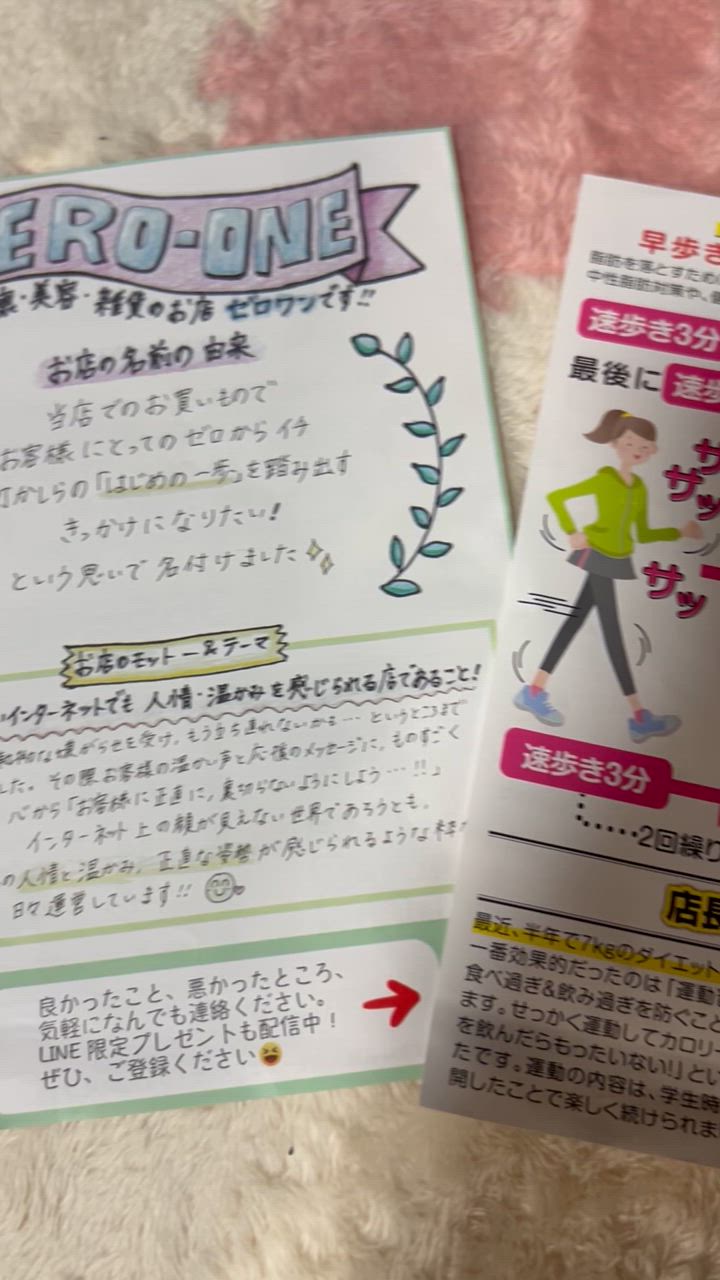 ERO-ONE
・美容・雑貨のお店 ゼロワンです!!
お店の名前の由来
当店でのお買いもので
お客様にとってのゼロからイチ
かしらの「はじめの一歩」を踏み出す
きっかけになりたい!
という思いで名付けました
お店のモットー&テーマ
インターネットでも人情・温かみを感じられる店であること!
な嫌がらせを受け、もう立ち直れないかも…というところまで
した。その際お客様の温かい声と応援のメッセージに、ものすごく
心から「お客様に正直に、裏切らないようにしよう…!!」
インターネット上の顔が見えない世界であろうとも、
の人情と温かみ、正直な姿勢が感じられるような
日々運営しています!!
良かったこと、悪かったところ、
気軽になんでも連絡ください。
LINE 限定プレゼントも配信中!
ぜひ、ご登録ください😆
早歩き
脂肪を落とすため
中性脂肪対策や、
速歩き3分
最後に 速歩
サッ
サッ
速歩き3分
……2回繰り
店長
最近、半年で7kgのダイエット
一番効果的だったのは「運動
食べ過ぎ&飲み過ぎを防ぐこと
ます。せっかく運動してカロリー
を飲んだらもったいない!」とい
たです。運動の内容は、学生時
開したことで楽しく続けられま